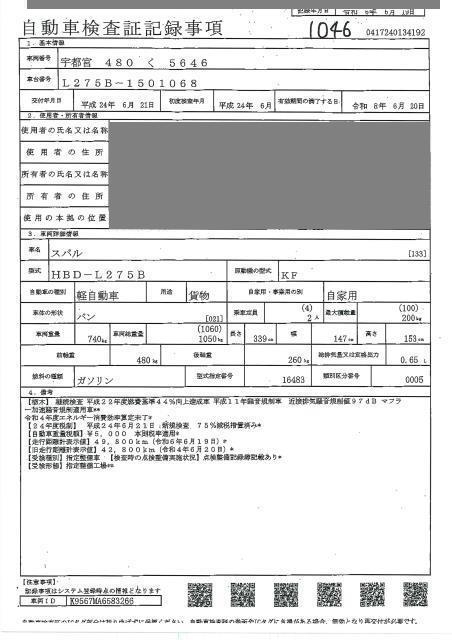 記録年月日 令和 6年 6月 19日
自動車検査証記録事項 1046 0417240134192
1. 基本情報
車両番号 宇都宮 480 く 5646
車台番号 L275B-1501068
交付年月日 平成 24年 6月 21日 初度検査年月 平成 24年 6月 有効期間の満了する日 令和 8年 6月 20日
2. 使用者・所有者情報
使用者の氏名又は名称
使用者の住所
所有者の氏名又は名称
所有者の住所
使用の本拠の位置
3. 車両詳細情報
車名 スバル [133]
型式 HBD-L275B 原動機の型式 KF
自動車の種別 軽自動車 用途 貨物 自家用・事業用の別 自家用
車体の形状 バン [021] 乗車定員 (4) 2人 最大積載量 (100) 200kg
車両重量 740kg 車両総重量 (1060) 1050kg 長さ 339cm 幅 147cm 高さ 153cm
前軸重 480kg 後軸重 260kg 総排気量又は定格出力 0.65 L
燃料の種類 ガソリン 型式指定番号 16483 類別区分番号 0005
4. 備考
【栃木】 継続検査 平成22年度燃費基準44%向上達成車 平成11年騒音規制車 近接排気騒音規制値97dB マフラ
ー加速騒音規制適用車**
令和4年度エネルギー消費効率算定未了*
【24年度税制】 平成24年6月21日:新規検査 75%減税措置済み*
【自動車重量税額】¥5,000 本則税率適用*
【走行距離計表示値】49,800km(令和6年6月19日)*
【旧走行距離計表示値】42,800km(令和4年6月20日)*
【受検種別】指定整備車 【検査時の点検整備実施状況】点検整備記録簿記載あり*
【受検形態】指定整備工場**
【注意事項】
記録事項はシステム登録時点の情報となります
車両ID K9567MA6583266